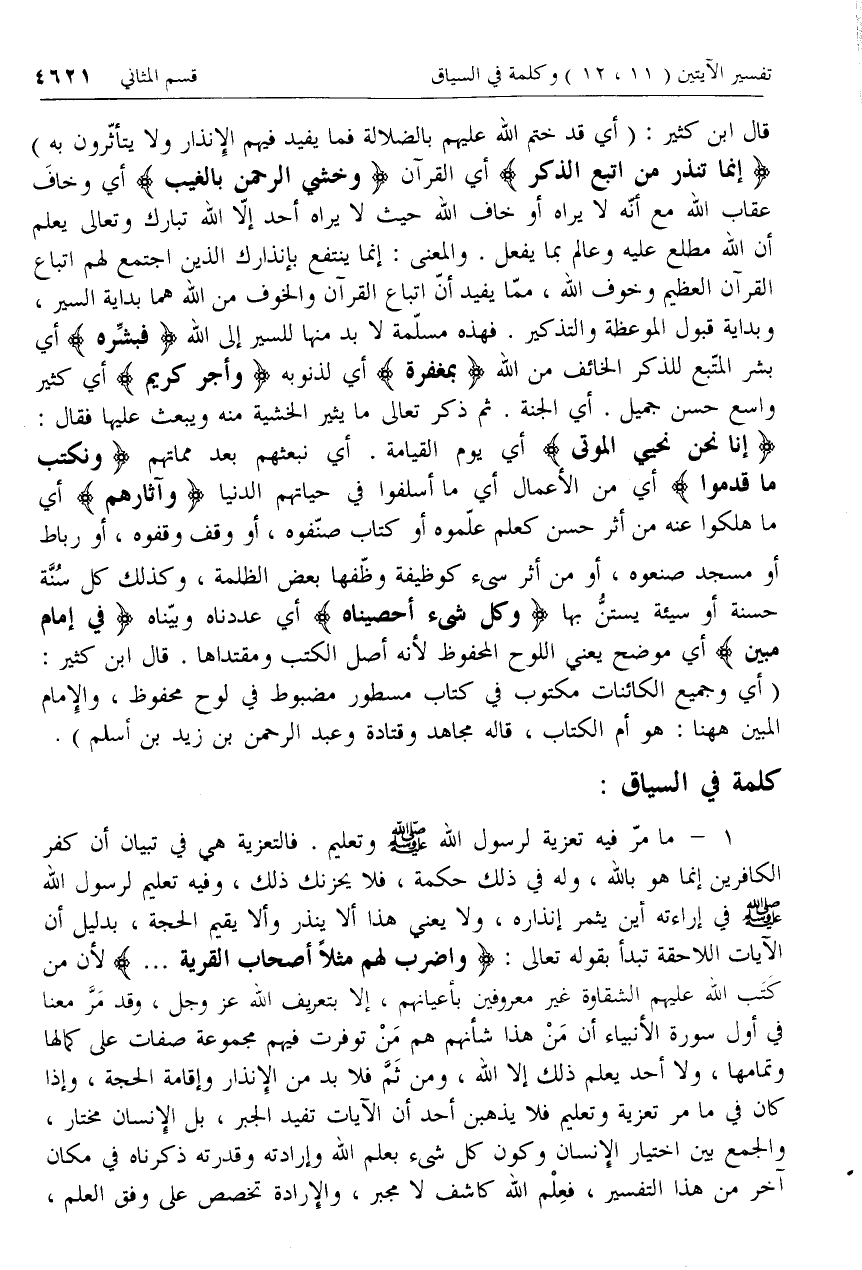 تفسير الآيتين ( ١١ ، ١٢ ) وكلمة في السياق قسم المثاني ٤٦٢١
قال ابن كثير : ( أي قد ختم الله عليهم بالضلالة فما يفيد فيهم الإنذار ولا يتأثّرون به )
﴿ إنما تنذر من اتبع الذكر ﴾ أي القرآن ﴿ وخشي الرحمن بالغيب ﴾ أي وخافَ
عقاب الله مع أنّه لا يراه أو خاف الله حيث لا يراه أحد إلّا الله تبارك وتعالى يعلم
أن الله مطلع عليه وعالم بما يفعل . والمعنى : إنما ينتفع بإنذارك الذين اجتمع لهم اتباع
القرآن العظيم وخوف الله ، ممّا يفيد أنّ اتباع القرآن والخوف من الله هما بداية السير ،
وبداية قبول الموعظة والتذكير . فهذه مسلّمة لا بد منها للسير إلى الله ﴿ فبشِّره ﴾ أي
بشر المتّبع للذكر الخائف من الله ﴿ بمغفرة ﴾ أي لذنوبه ﴿ وأجر كريم ﴾ أي كثير
واسع حسن جميل . أي الجنة . ثم ذكر تعالى ما يثير الخشية منه ويبعث عليها فقال :
﴿ إنا نحن نحيي الموتى ﴾ أي يوم القيامة . أي نبعثهم بعد مماتهم ﴿ ونكتب
ما قدموا ﴾ أي من الأعمال أي ما أسلفوا في حياتهم الدنيا ﴿ وآثارهم ﴾ أي
ما هلكوا عنه من أثر حسن كعلم علّموه أو كتاب صنّفوه ، أو وقف وقفوه ، أو رباط
أو مسجد صنعوه ، أو من أثر سىء كوظيفة وظّفها بعض الظلمة ، وكذلك كل سُنَّة
حسنة أو سيئة يستنُّ بها ﴿ وكل شىء أحصيناه ﴾ أي عددناه وبيّناه ﴿ في إمام
مبين ﴾ أي موضح يعني اللوح المحفوظ لأنه أصل الكتب ومقتداها . قال ابن كثير :
( أي وجميع الكائنات مكتوب في كتاب مسطور مضبوط في لوح محفوظ ، والإمام
المبين ههنا : هو أم الكتاب ، قاله مجاهد وقتادة وعبد الرحمن بن زيد بن أسلم ) .
كلمة في السياق :
١ – ما مرّ فيه تعزية لرسول الله ﷺ وتعليم . فالتعزية هي في تبيان أن كفر
الكافرين إنما هو بالله ، وله في ذلك حكمة ، فلا يحزنك ذلك ، وفيه تعليم لرسول الله
ﷺ في إراءته أين يثمر إنذاره ، ولا يعني هذا ألا ينذر وألا يقيم الحجة ، بدليل أن
الآيات اللاحقة تبدأ بقوله تعالى : ﴿ واضرب لهم مثلاً أصحاب القرية ... ﴾ لأن من
كَتَب الله عليهم الشقاوة غير معروفين بأعيانهم ، إلا بتعريف الله عز وجل ، وقد مَرَّ معنا
في أول سورة الأنبياء أن مَنْ هذا شأنهم هم مَنْ توفرت فيهم مجموعة صفات على كمالها
وتمامها ، ولا أحد يعلم ذلك إلا الله ، ومن ثَمَّ فلا بد من الإنذار وإقامة الحجة ، وإذا
كان في ما مر تعزية وتعليم فلا يذهبن أحد أن الآيات تفيد الجبر ، بل الإنسان مختار ،
والجمع بين اختيار الإنسان وكون كل شىء بعلم الله وإرادته وقدرته ذكرناه في مكان
آخر من هذا التفسير ، فعِلْم الله كاشف لا مجبر ، والإرادة تخصص على وفق العلم ،